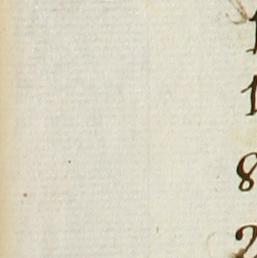 1
1
8
2